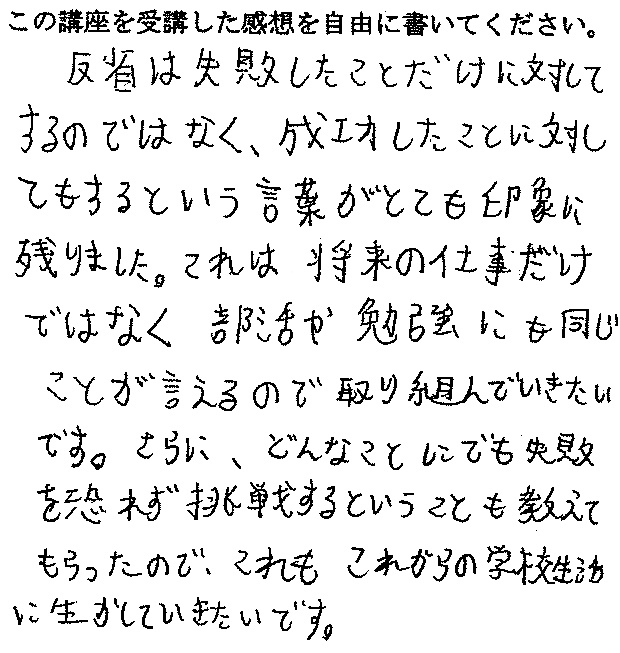 この講座を受講した感想を自由に書いてください。
反省は失敗したことだけに対して
するのではなく、成功したことに対し
てもするという言葉がとても印象に
残りました。これは将来の仕事だけ
ではなく部活や勉強にも同じ
ことが言えるので取り組んでいきたい
です。さらに、どんなことにでも失敗
を恐れず挑戦するということも教えて
もらったので、これもこれからの学校生活
に生かしていきたいです。